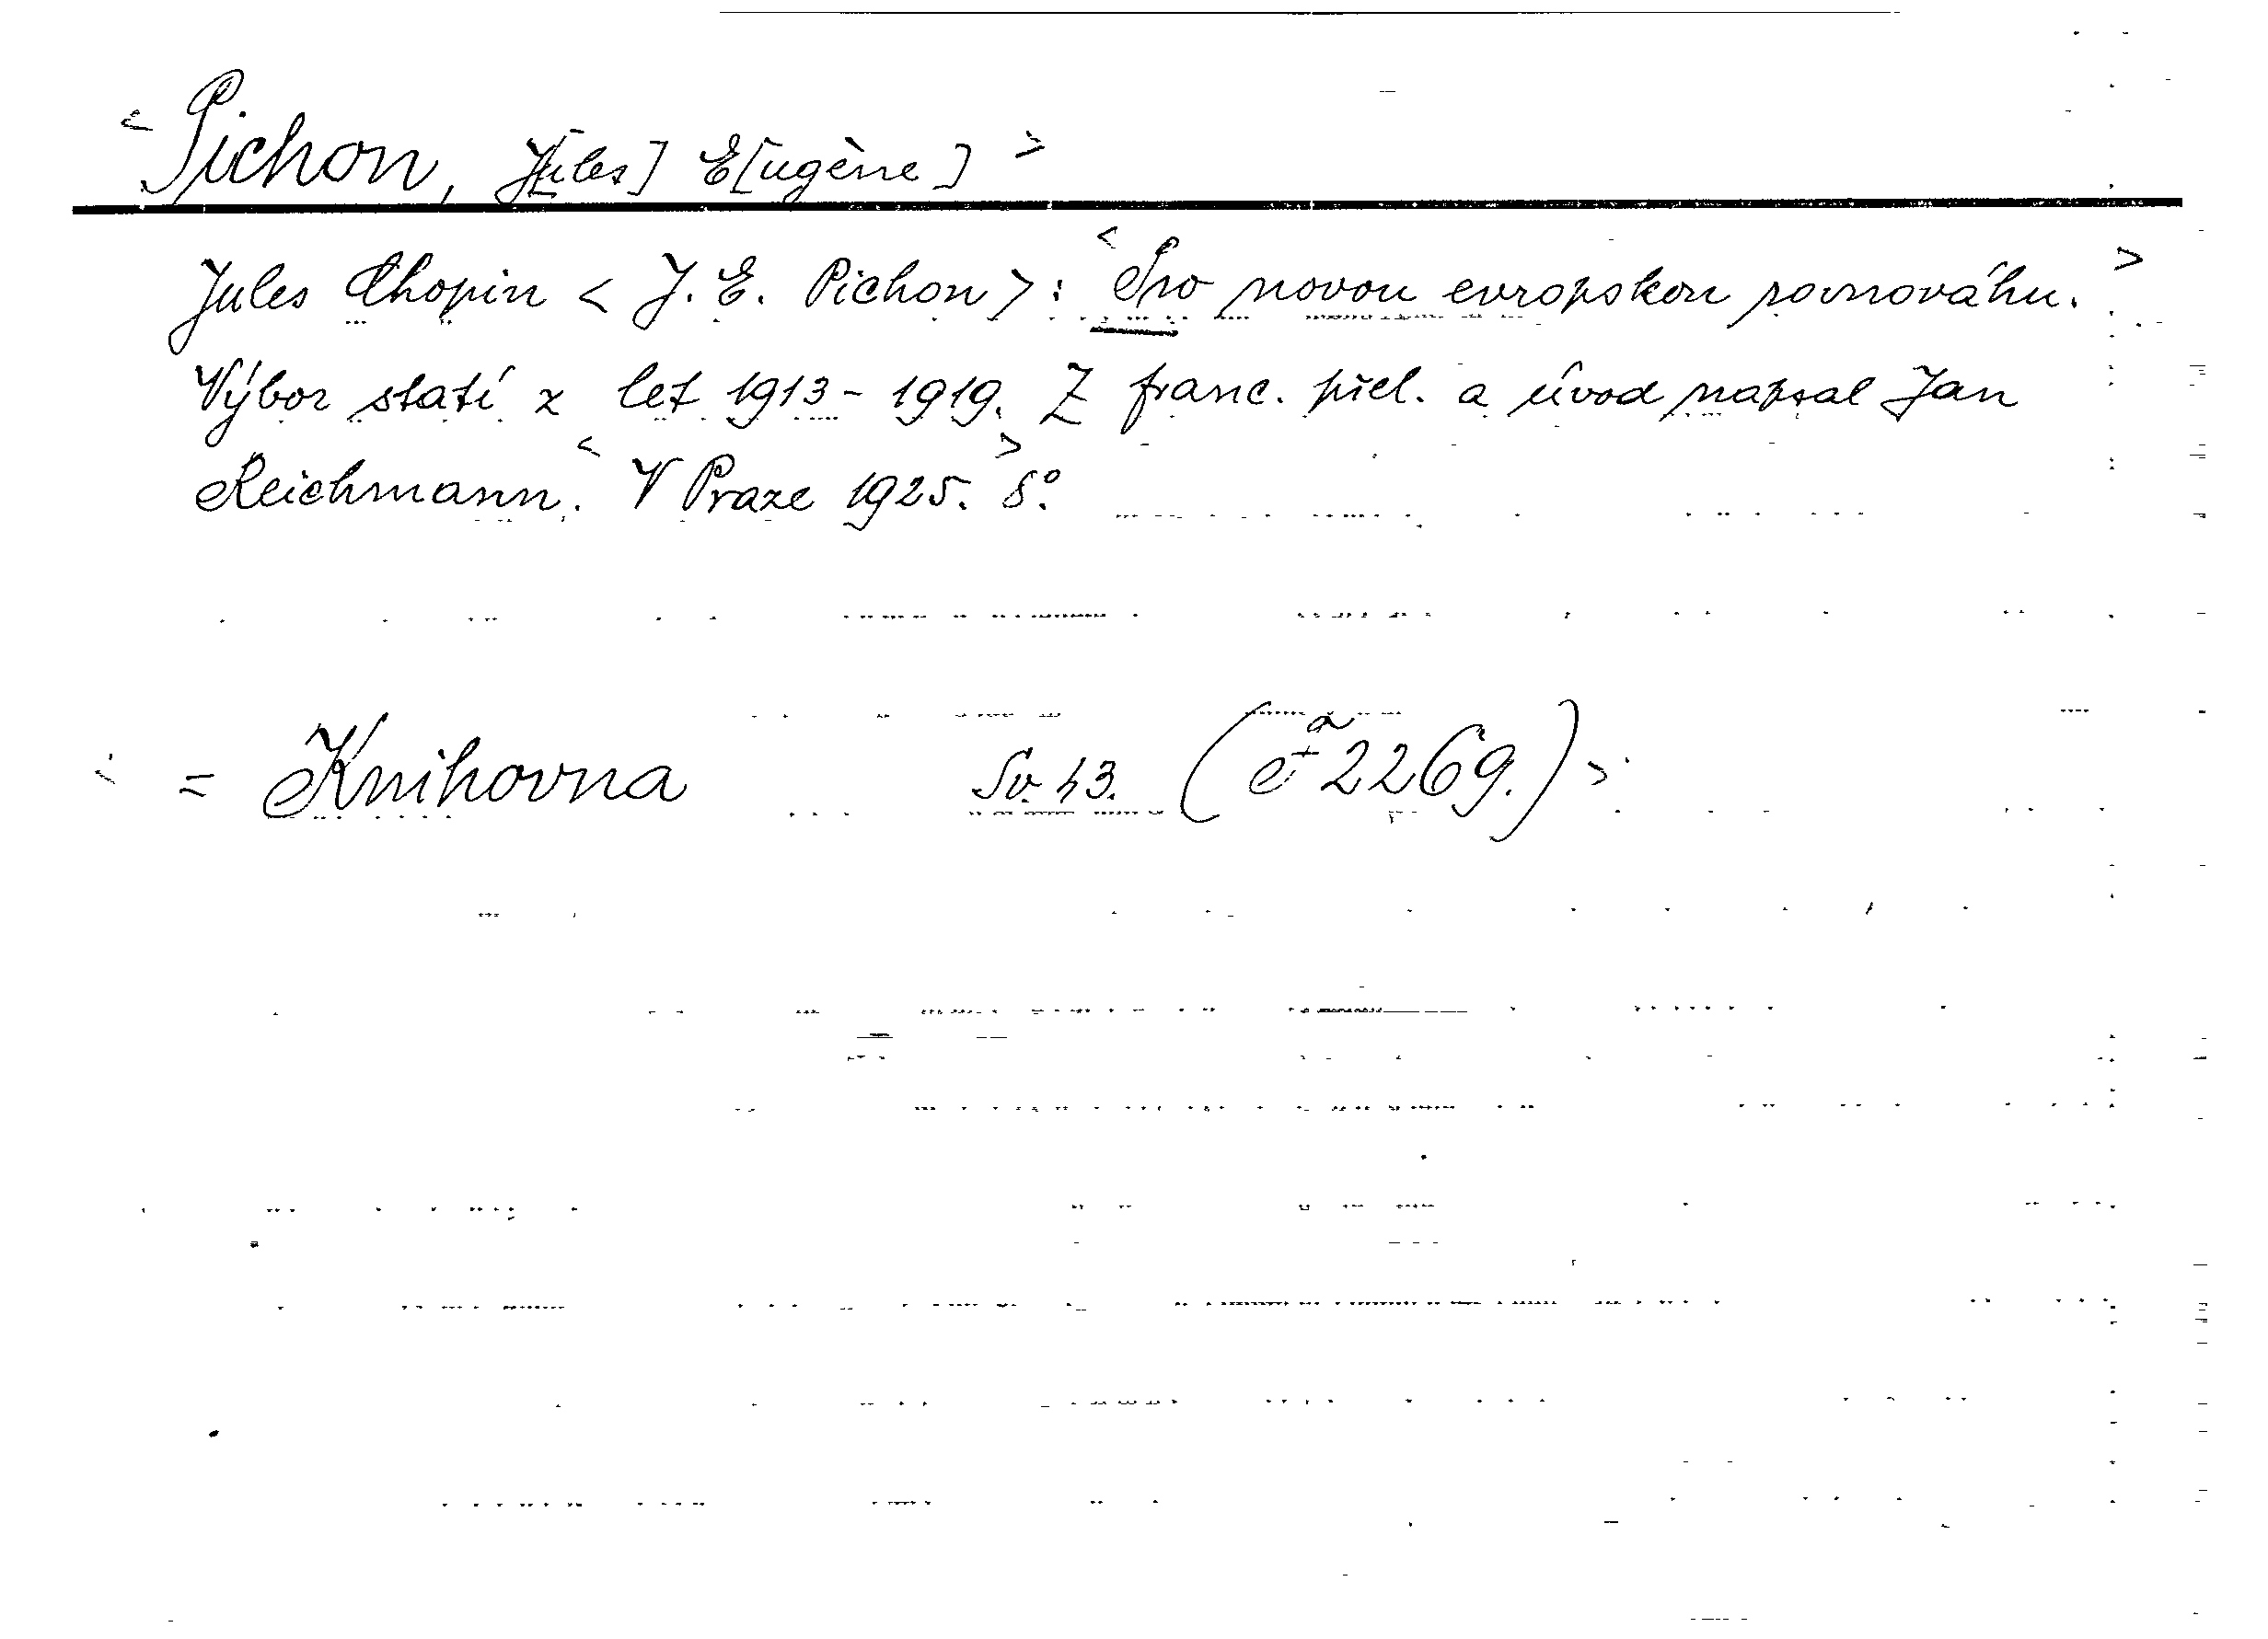 <Pichon, J[ules] E[ugène]>
Jules Chopin <J. E. Pichon>: <Pro novou evropskou rovnováhu.>
Výbor statí z let 1913-1919. Z franc. přel. a úvod napsal Jan
Reichmann. <V Praze 1925.> 8°.
< = Knihovna Sv. 43. ( 2269.)>